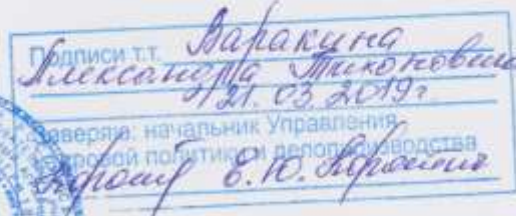 Подписи т.т. Варакина
Александра Тихоновича
21.03.2019г
Заверяю: начальник Управления
кадровой политики и делопроизводства
Е.Ю.